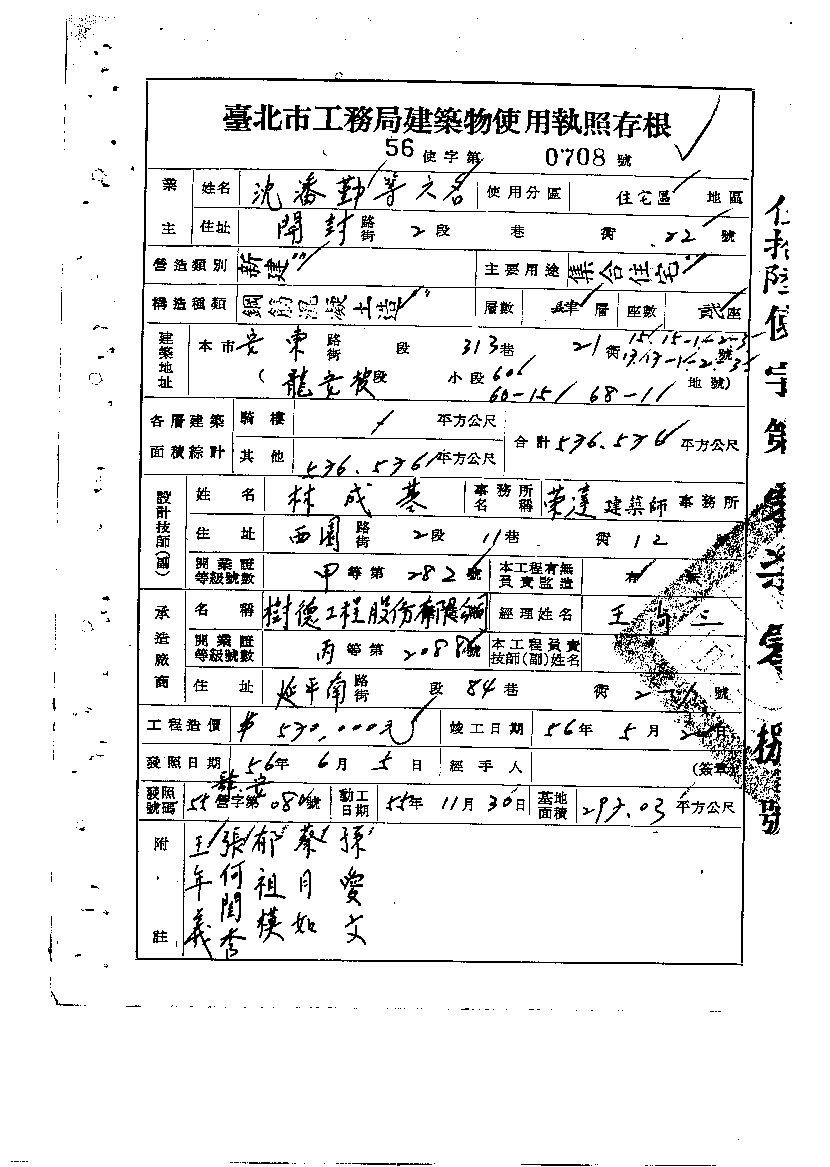 臺北市工務局建築物使用執照存根
56 使字第 0708 號
業主 姓名 沈潘勤等六名 使用分區 住宅區 地區
住址 開封 路街 2段 巷 衖 22 號
營造類別 新建 主要用途 集合住宅
構造種類 鋼筋混凝土造 層數 肆層 座數 貳座
建築地址 本市安東 路街 段 313巷 21衖 號
(龍安坡段 小段 60-15/ 68-11 地號)
各層建築面積綜計 騎樓 / 平方公尺 合計 536.536 平方公尺
其他 536.536 平方公尺
設計技師(副) 姓名 林成基 事務所名稱 榮達建築師事務所
住址 西園 路街 2段 11巷 衖 12
開業證等級號數 甲等第 282 號 本工程有無負責監造 有
承造廠商 名稱 樹德工程股份有限公司 經理姓名 王尚三
開業證等級號數 丙等第 2088號 本工程負責技師(副)姓名
住址 延平南 路街 段 84巷 衖 號
工程造價 $ 530,000元 竣工日期 56年 5月 日
發照日期 56年 6月 5日 經手人 (簽章)
發照號碼 55營字第 080號 動工日期 55年 11月 30日 基地面積 293.03 平方公尺
附註 孫愛文
蔡月如
郁祖模
張何閨秀
王年義